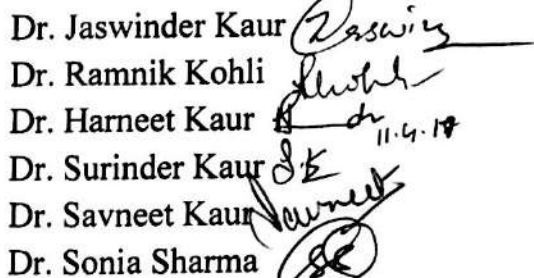 Dr. Jaswinder Kaur
Dr. Ramnik Kohli Kohli
Dr. Harneet Kaur
11.4.17
Dr. Surinder Kaur S.K
Dr. Savneet Kaur Savneet
Dr. Sonia Sharma